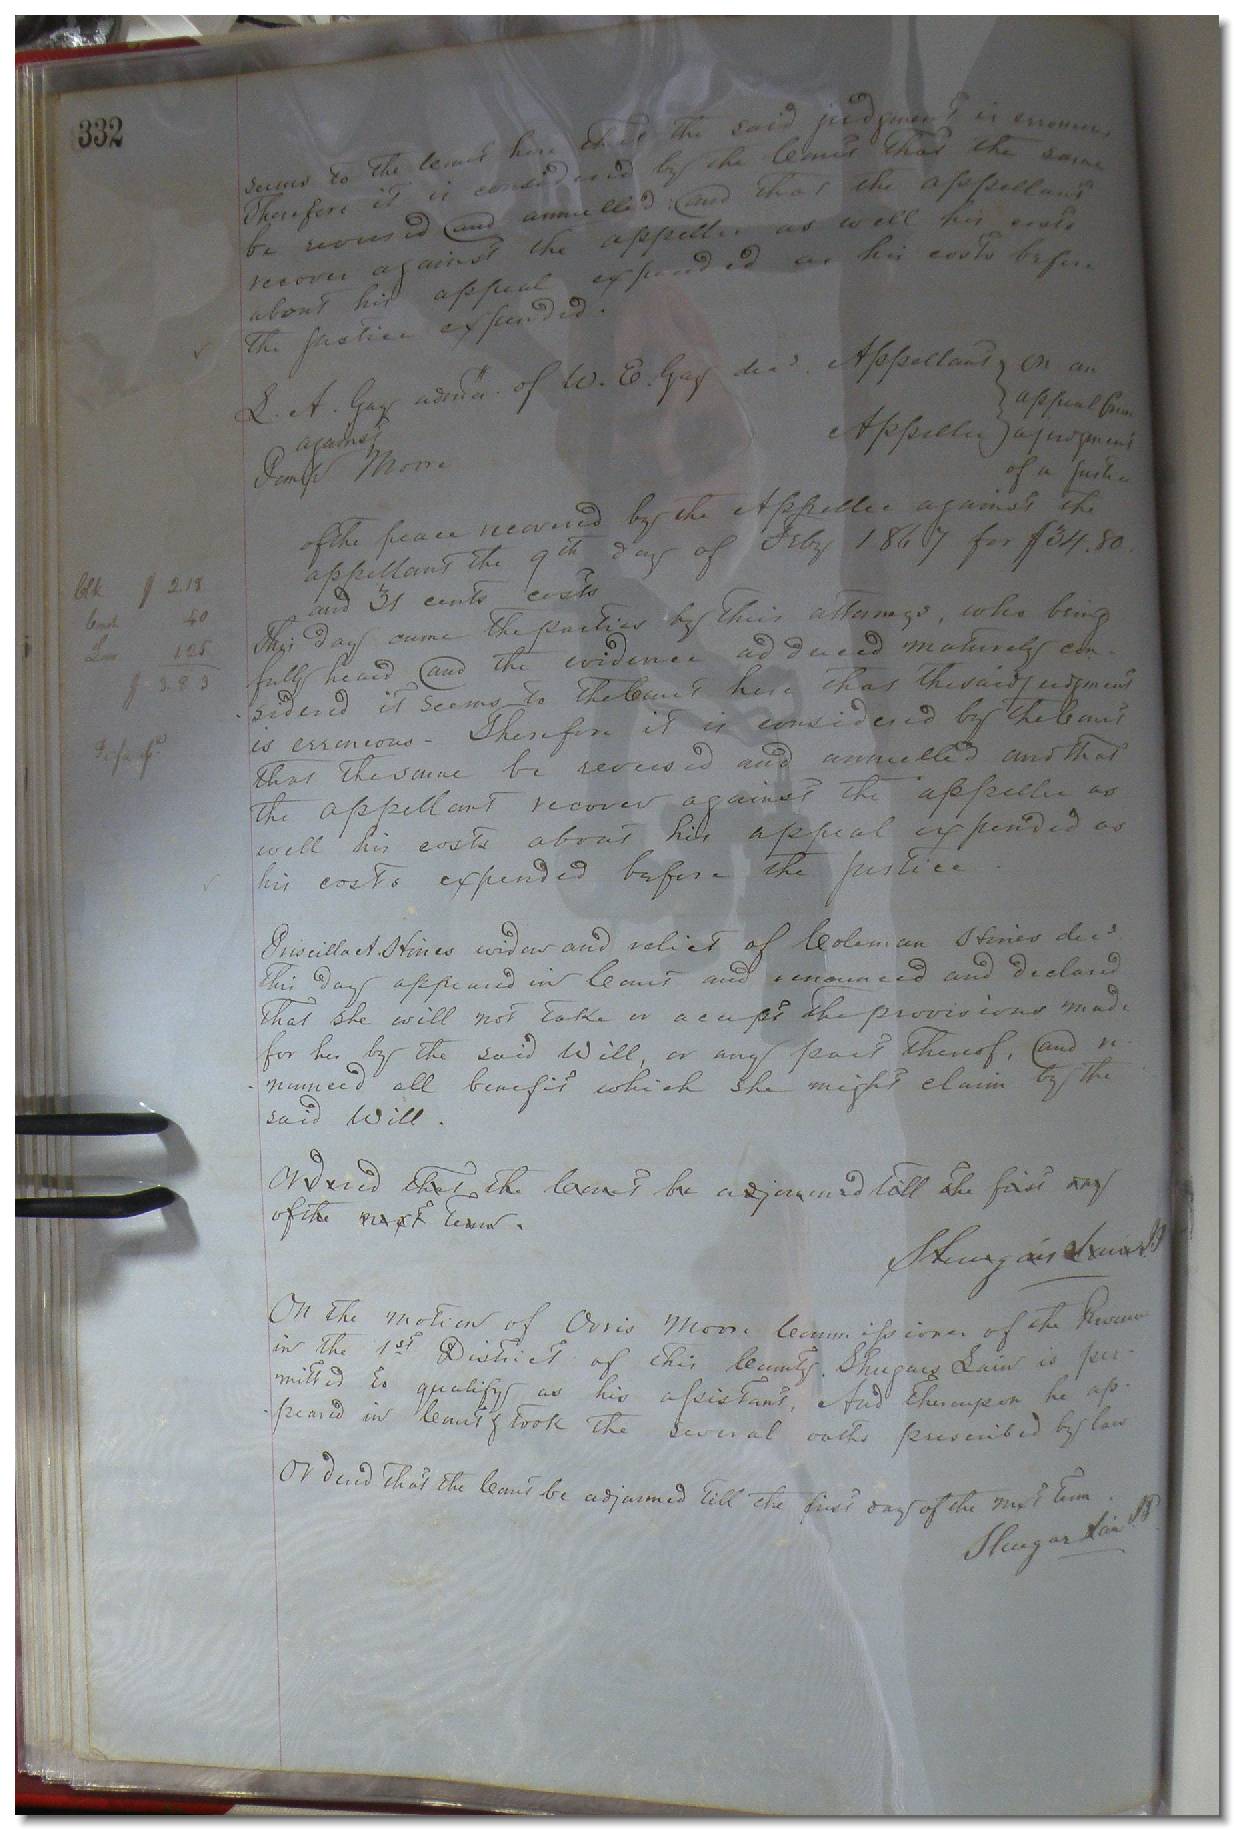 332
seems to the Court here that the said judgment is erroneous
Therefore it is considered by the Court that the same
be reversed and annulled and that the appellant
recover against the appellee as well his costs
about his appeal expended as his costs before
the justice expended.
L. A. Gay admr. of W. E. Gay decd. Appellant } On an
against appeal from
Appellee } a judgment
Moore
of a justice
of the peace recovered by the Appellee against the
appellant the 9th day of Feby 1867 for $34.80
and 31 cents costs
Clk $ 2.18
50
1.25
$ 3.83
This day came the parties by their attorneys, who being
fully heard and the evidence adduced maturely con-
sidered it seems to the Court here that the said judgment
is erroneous - Therefore it is considered by the Court
that the same be reversed and annulled and that
the appellant recover against the appellee as
well his costs about his appeal expended as
his costs expended before the justice.
Priscilla A Hines widow and relict of Coleman Hines decd
this day appeared in Court and renounced and declared
that she will not take or accept the provisions made
for her by the said Will, or any part thereof, and re-
nounced all benefit which she might claim by the
said Will.
Ordered that the Court be adjourned till the first day
of the next term.
On the motion of Orris Moore Commissioner of the Revenue
in the 1st District of this County. Shugars Lain is per-
mitted to qualify as his assistant, And thereupon he ap-
peared in Court & took the several oaths prescribed by law
Ordered that the Court be adjourned till the first day of the next term.
Shugar Lain